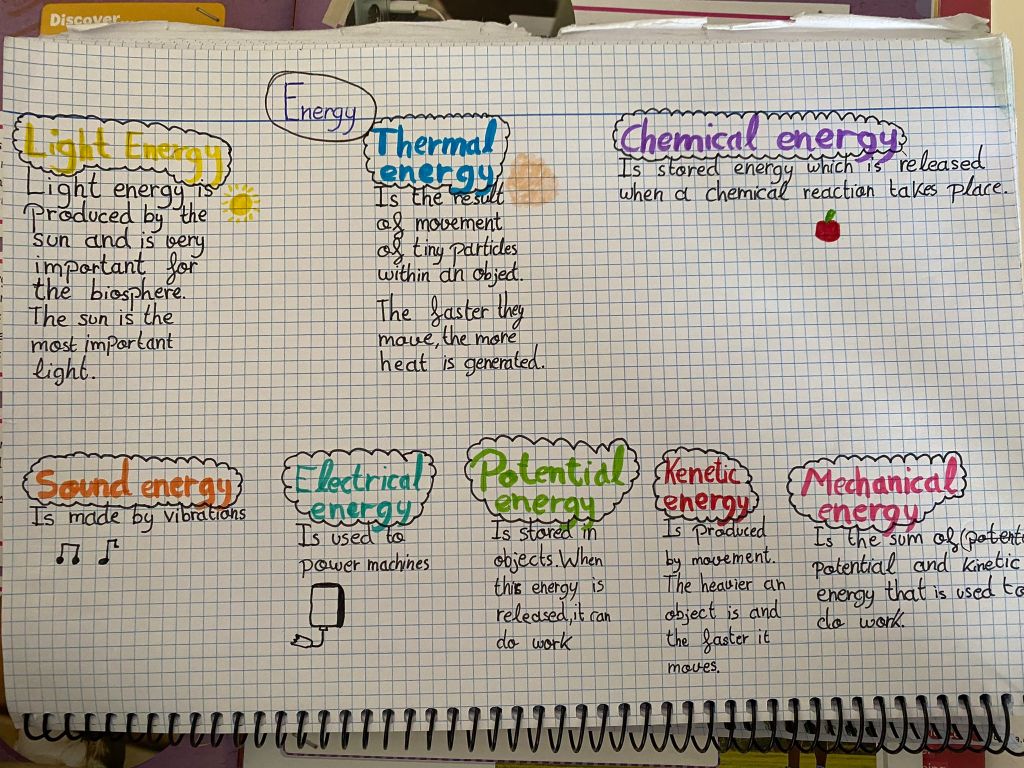 Discover
Energy
Light Energy
Light energy is
produced by the
sun and is very
important for
the biosphere.
The sun is the
most important
light.
Thermal
energy
Is the result
of movement
of tiny particles
within an object.
The faster they
move, the more
heat is generated.
Chemical energy
Is stored energy which is released
when a chemical reaction takes place.
Sound energy
Is made by vibrations
Electrical
energy
Is used to
power machines
Potential
energy
Is stored in
objects. When
this energy is
released, it can
do work
Kenetic
energy
Is produced
by movement.
The heavier an
object is and
the faster it
moves.
Mechanical
energy
Is the sum of (potent
potential and kinetic
energy that is used to
do work.